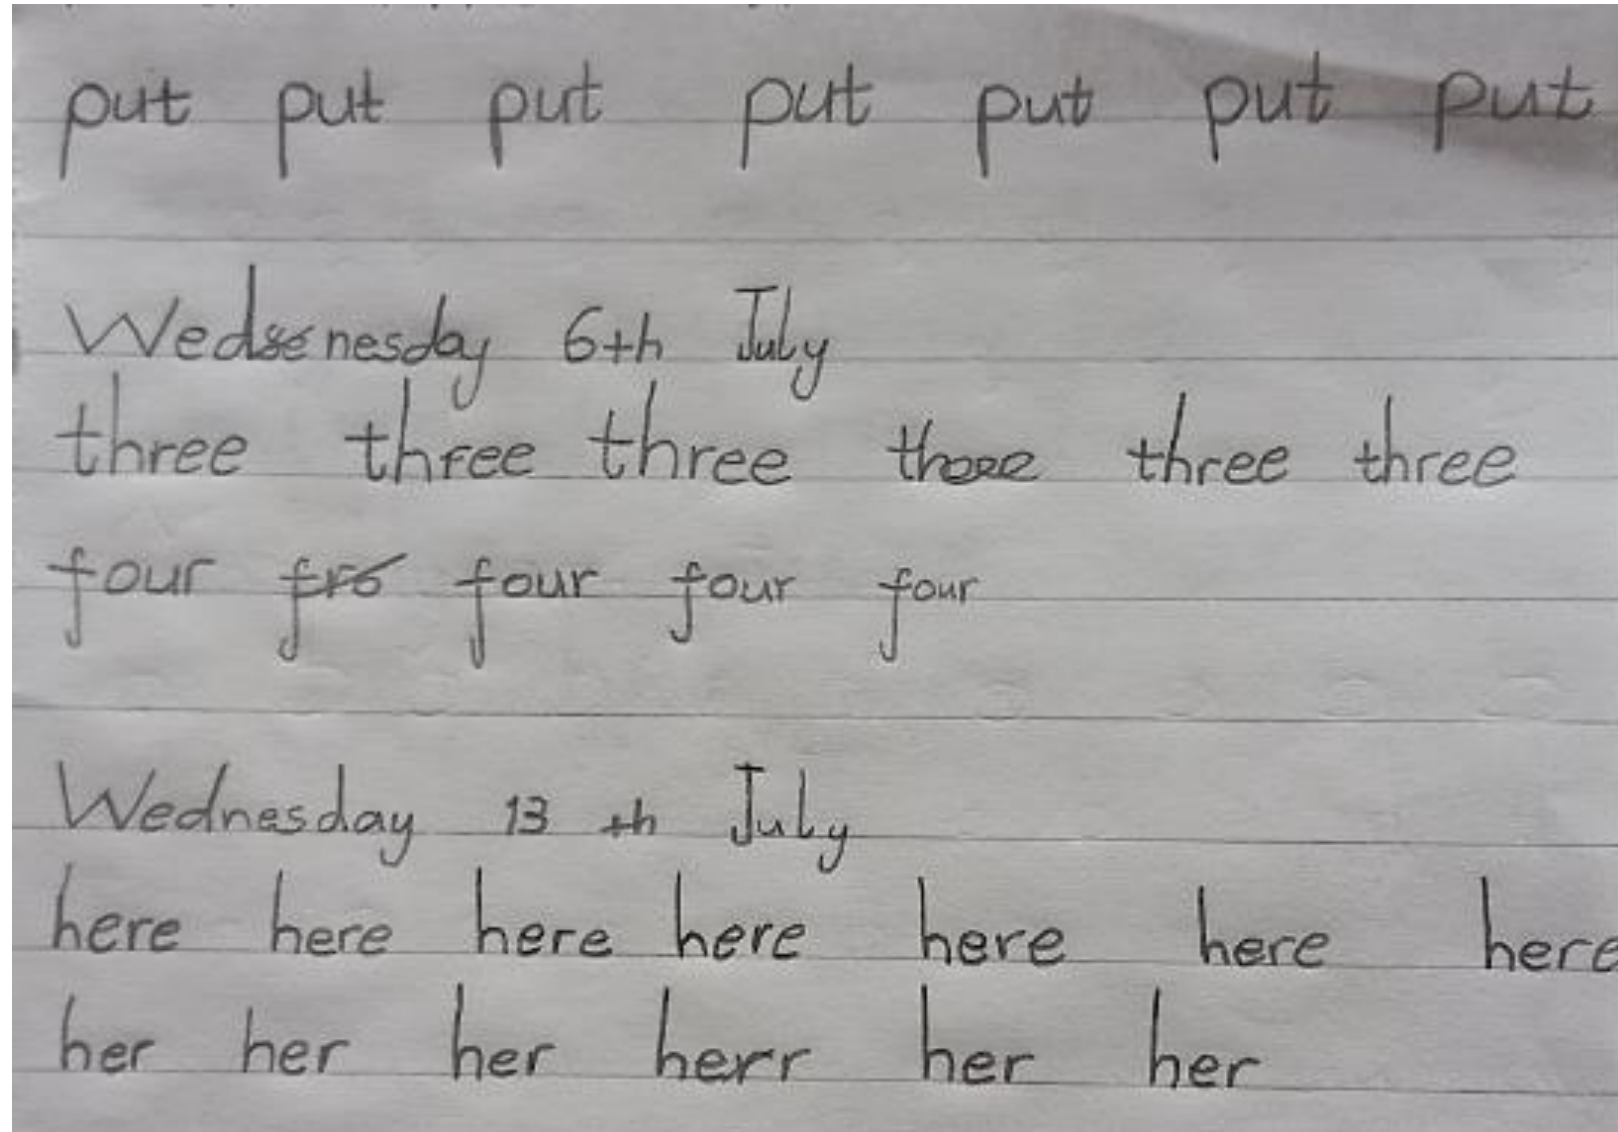 put put put put put put put
Wednesday 6th July
three three three three three
four fro four four four
Wednesday 13 th July
here here here here here here here
her her her herr her her